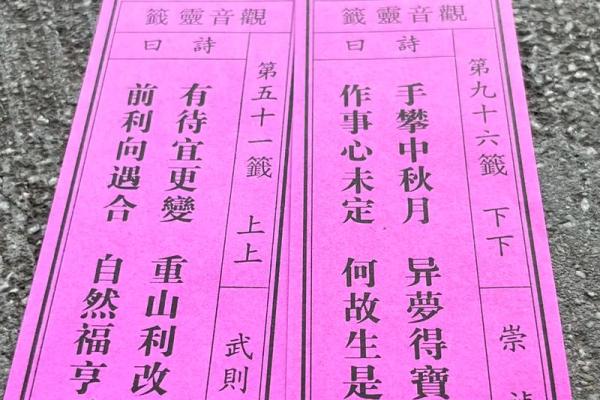 觀音靈籤
詩曰
第九十六籤 下下
崇
手攀中秋月 异夢得寶
作事心未定 何故生是
觀音靈籤
詩曰
第五十一籤 上上
武則
有待宜更變 重山利改
前利向遇合 自然福亨